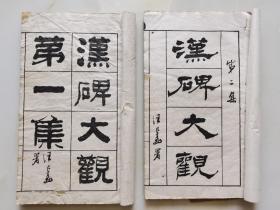 漢碑大觀
第一集
署
漢碑大觀
第二集
署